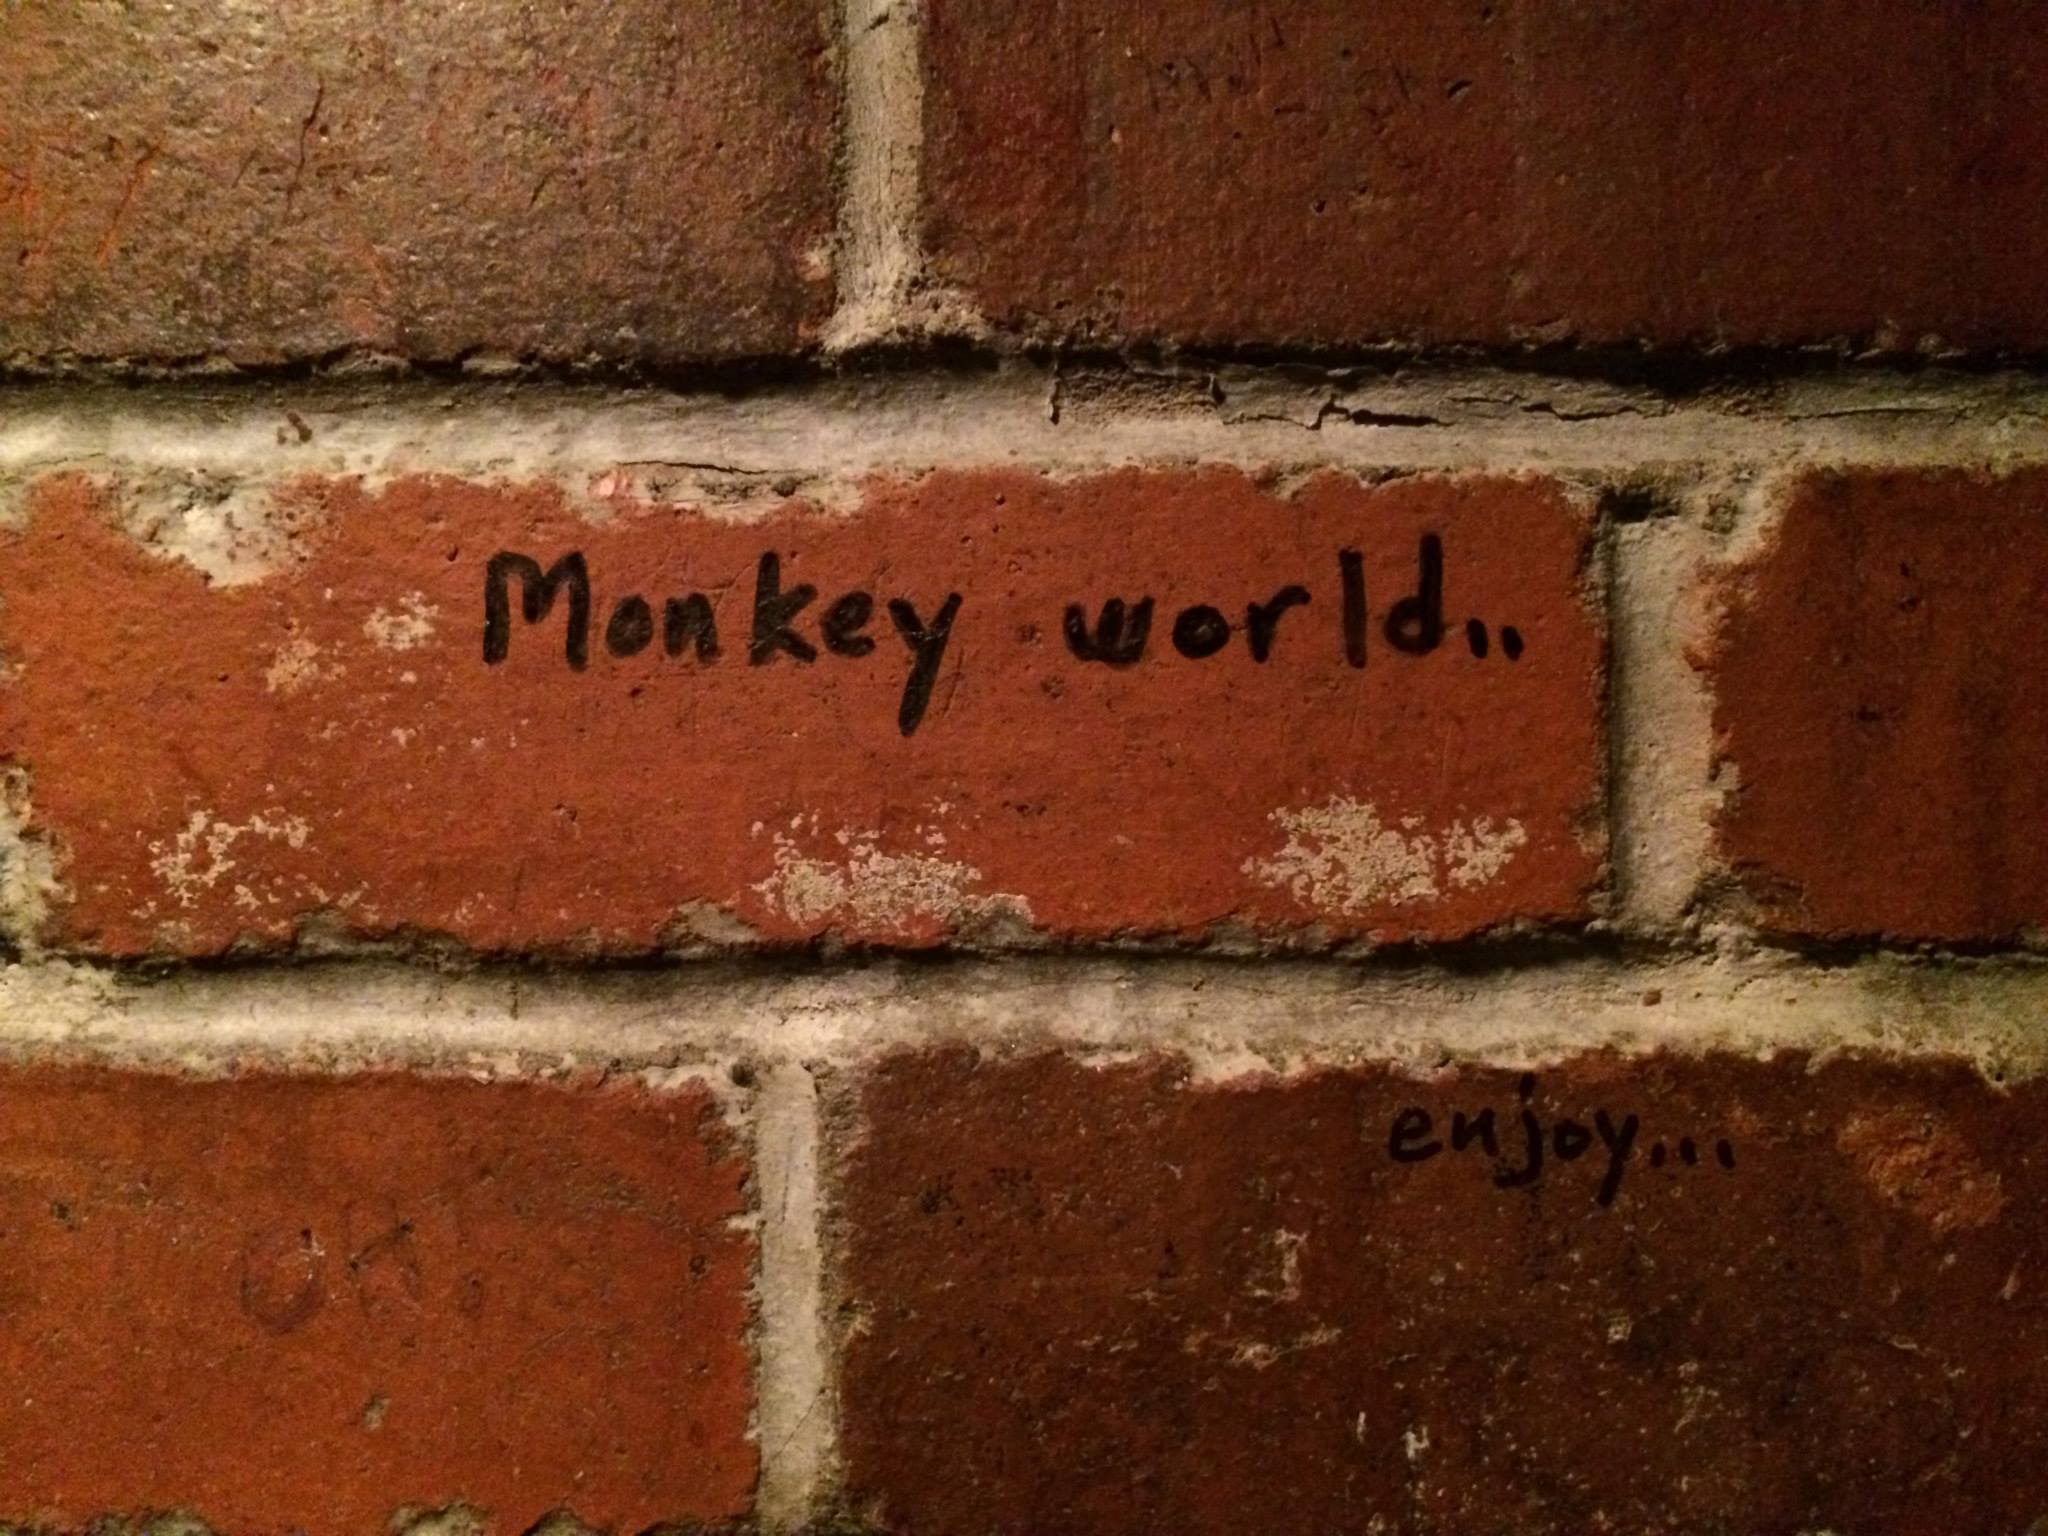 Monkey world..
enjoy...